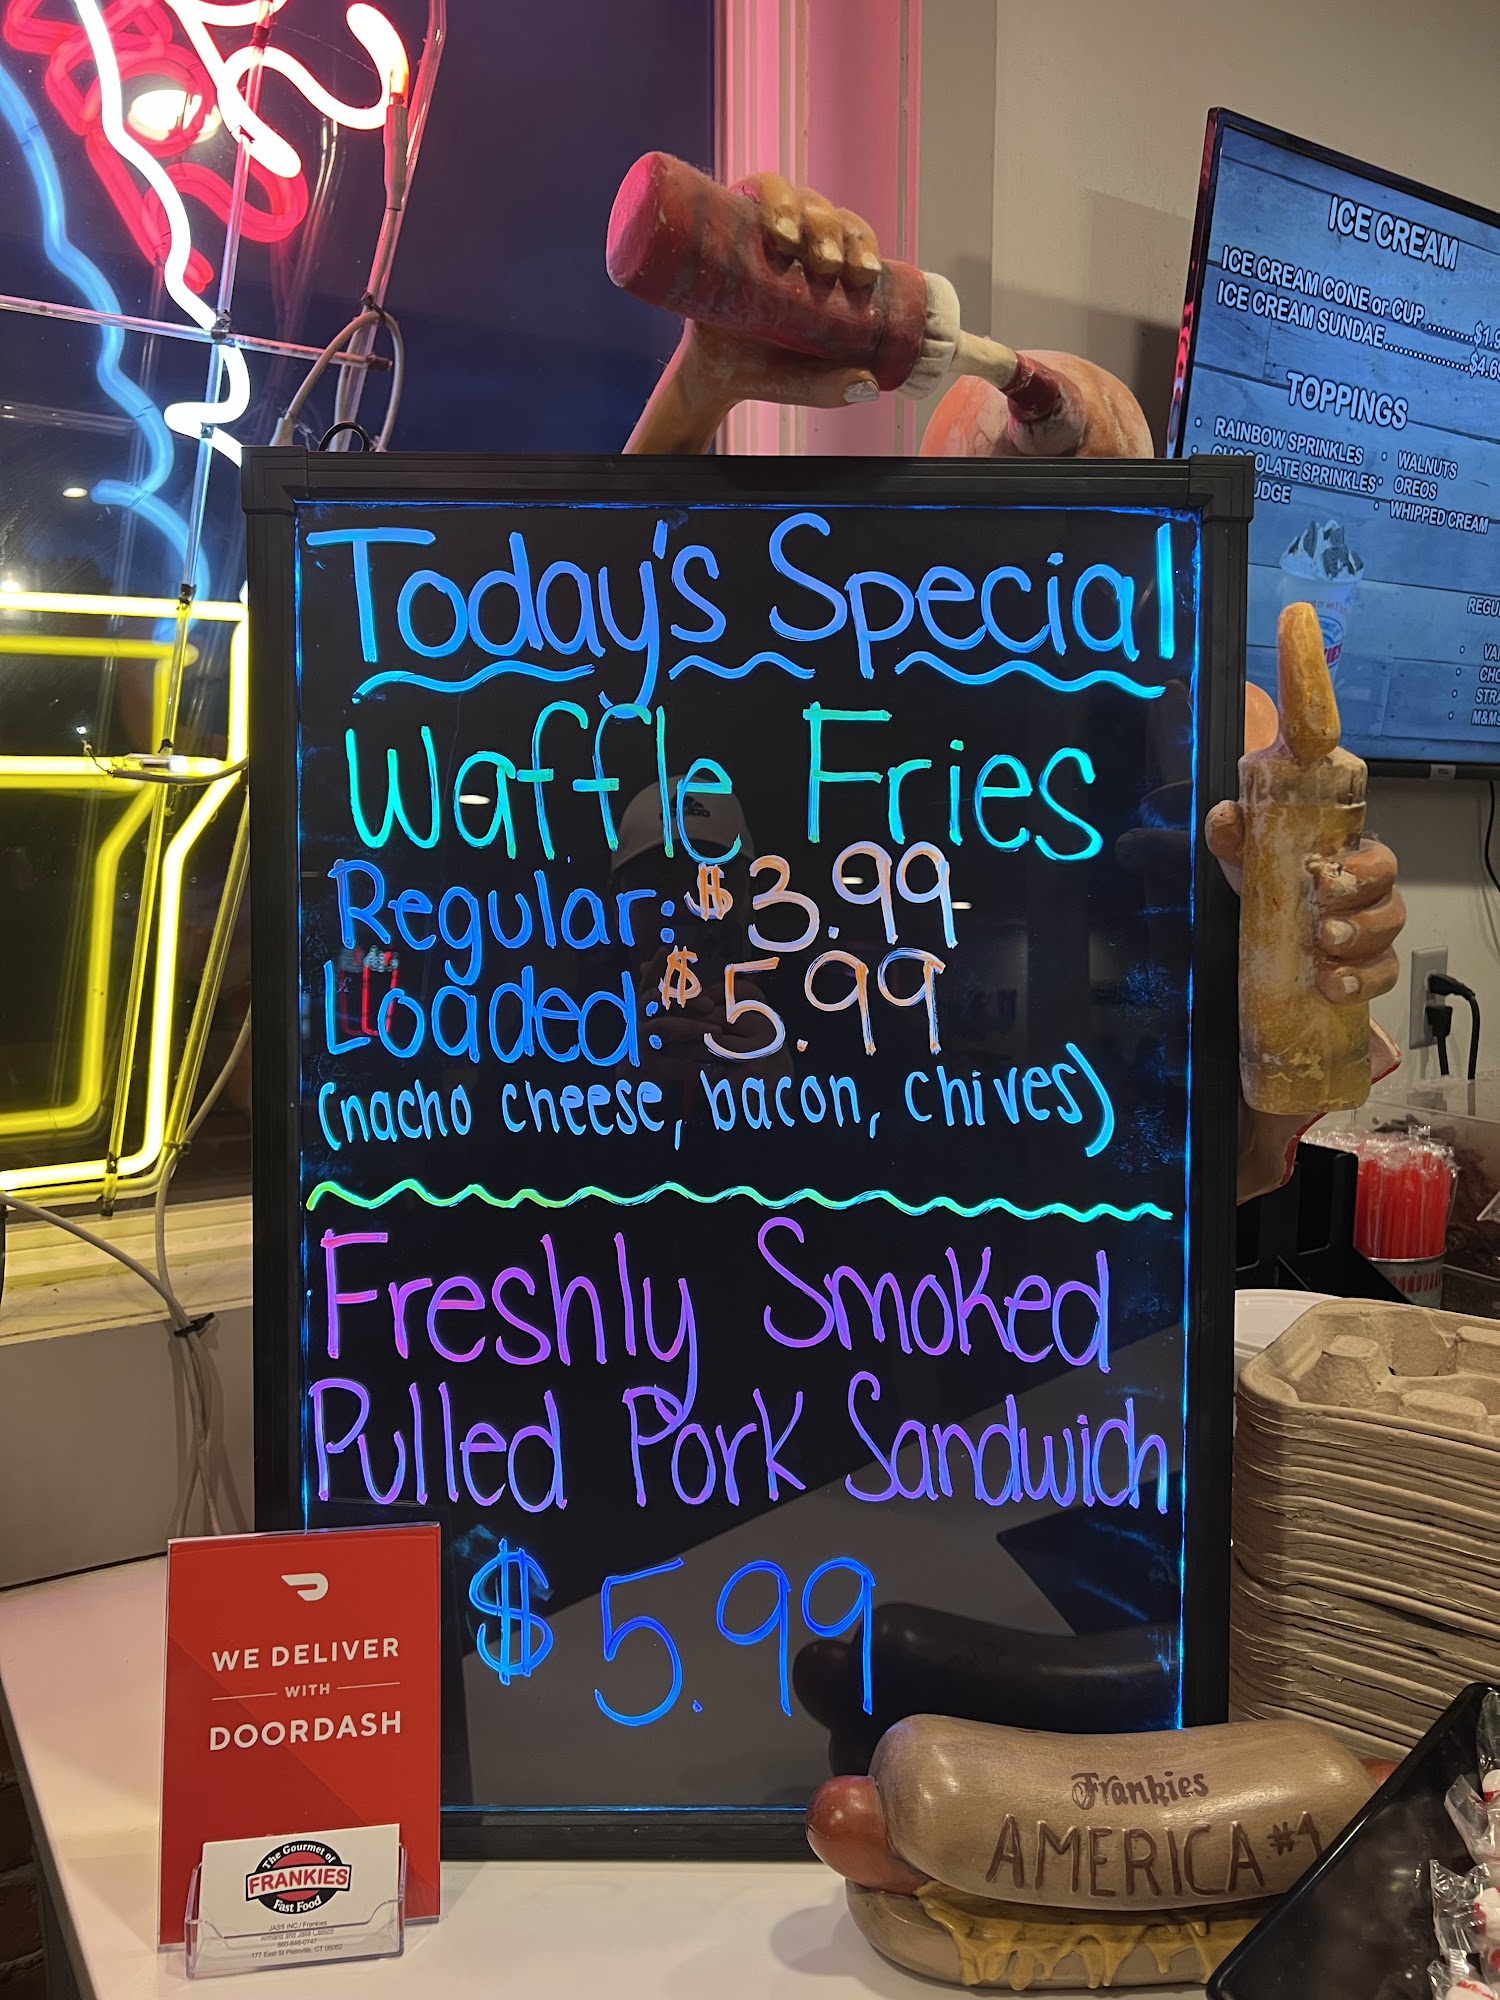 ICE CREAM
ICE CREAM CONE or CUP..........$1.9
ICE CREAM SUNDAE................$4.69
TOPPINGS
• RAINBOW SPRINKLES
SPRINKLES
• WALNUTS
• OREOS
• WHIPPED CREAM
Today's Special
Waffle Fries
Regular: $3.99
Loaded: $5.99
(nacho cheese, bacon, chives)
Freshly Smoked
Pulled Pork Sandwich
$5.99
WE DELIVER
WITH
DOORDASH
The Gourmet of
FRANKIES
Fast Food
JASS INC./ Frankies
177 East St Plainville, CT 06062
Frankies
AMERICA #1